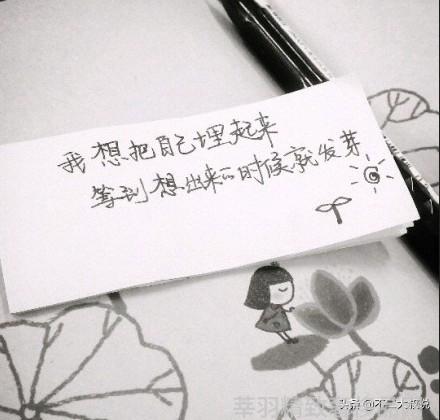 我想把自己埋起来
等到想出来的时候就发芽
莘羽精
头条@不二大叔说